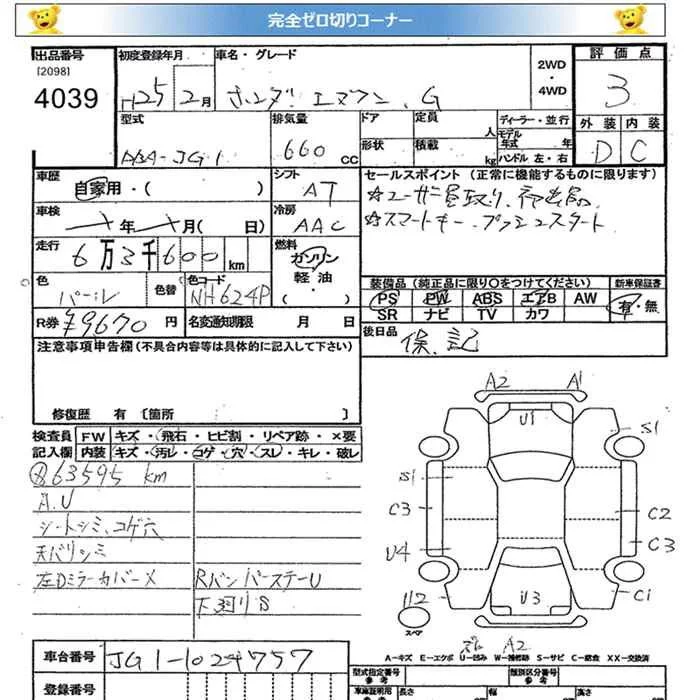 完全ゼロ切りコーナー
出品番号 初度登録年月 車名・グレード 2WD・4WD 評価点
[2098]
4039 H25 2月 ホンダ エヌワン、G 3
型式 排気量 ドア 定員 人 ディーラー・並行 外装 内装
ABA-JG1 660 CC 形状 積載 kg モデル年式 年 ハンドル 左・右 D C
車歴 自家用・( ) シフト AT セールスポイント (正常に機能するものに限ります)
☆ユーザー買取り、初出品
車検 年 月( 日) 冷房 AAC ☆スマートキー、プッシュスタート
走行 6万3千600km 燃料 ガソリン 軽油・( )
色 パール 色替 色コード NH624P
装備品 (純正品に限り○をつけてください) 新車保証書
PS PW ABS エアB AW 有・無
SR ナビ TV カワ
R券 ¥9670円 名変通知期限 月 日
後日品 保、記
注意事項申告欄 (不具合内容等は具体的に記入して下さい)
修復歴 有 [箇所 ]
検査員記入欄 FW キズ・飛石・ヒビ割・リペア跡・×要
内装 キズ・汚レ・コゲ・穴・スレ・キレ・破レ
63595 km
A.U
シートシミ、コゲ穴
天バリシミ
左Dミラーカバー×
RバンパーステーU
下廻りS
A2 A1
U1
S1
S1
C3 C2
U4 C3
U2 U3 C1
スペア
A2
A－キズ E－エクボ U－凹み W－補修跡 S－サビ C－腐食 XX－交換済
車台番号 JG1-1024757
登録番号
型式指定番号 参考 類別区分番号 参考
車庫証明用 参考 長さ 幅 高さ